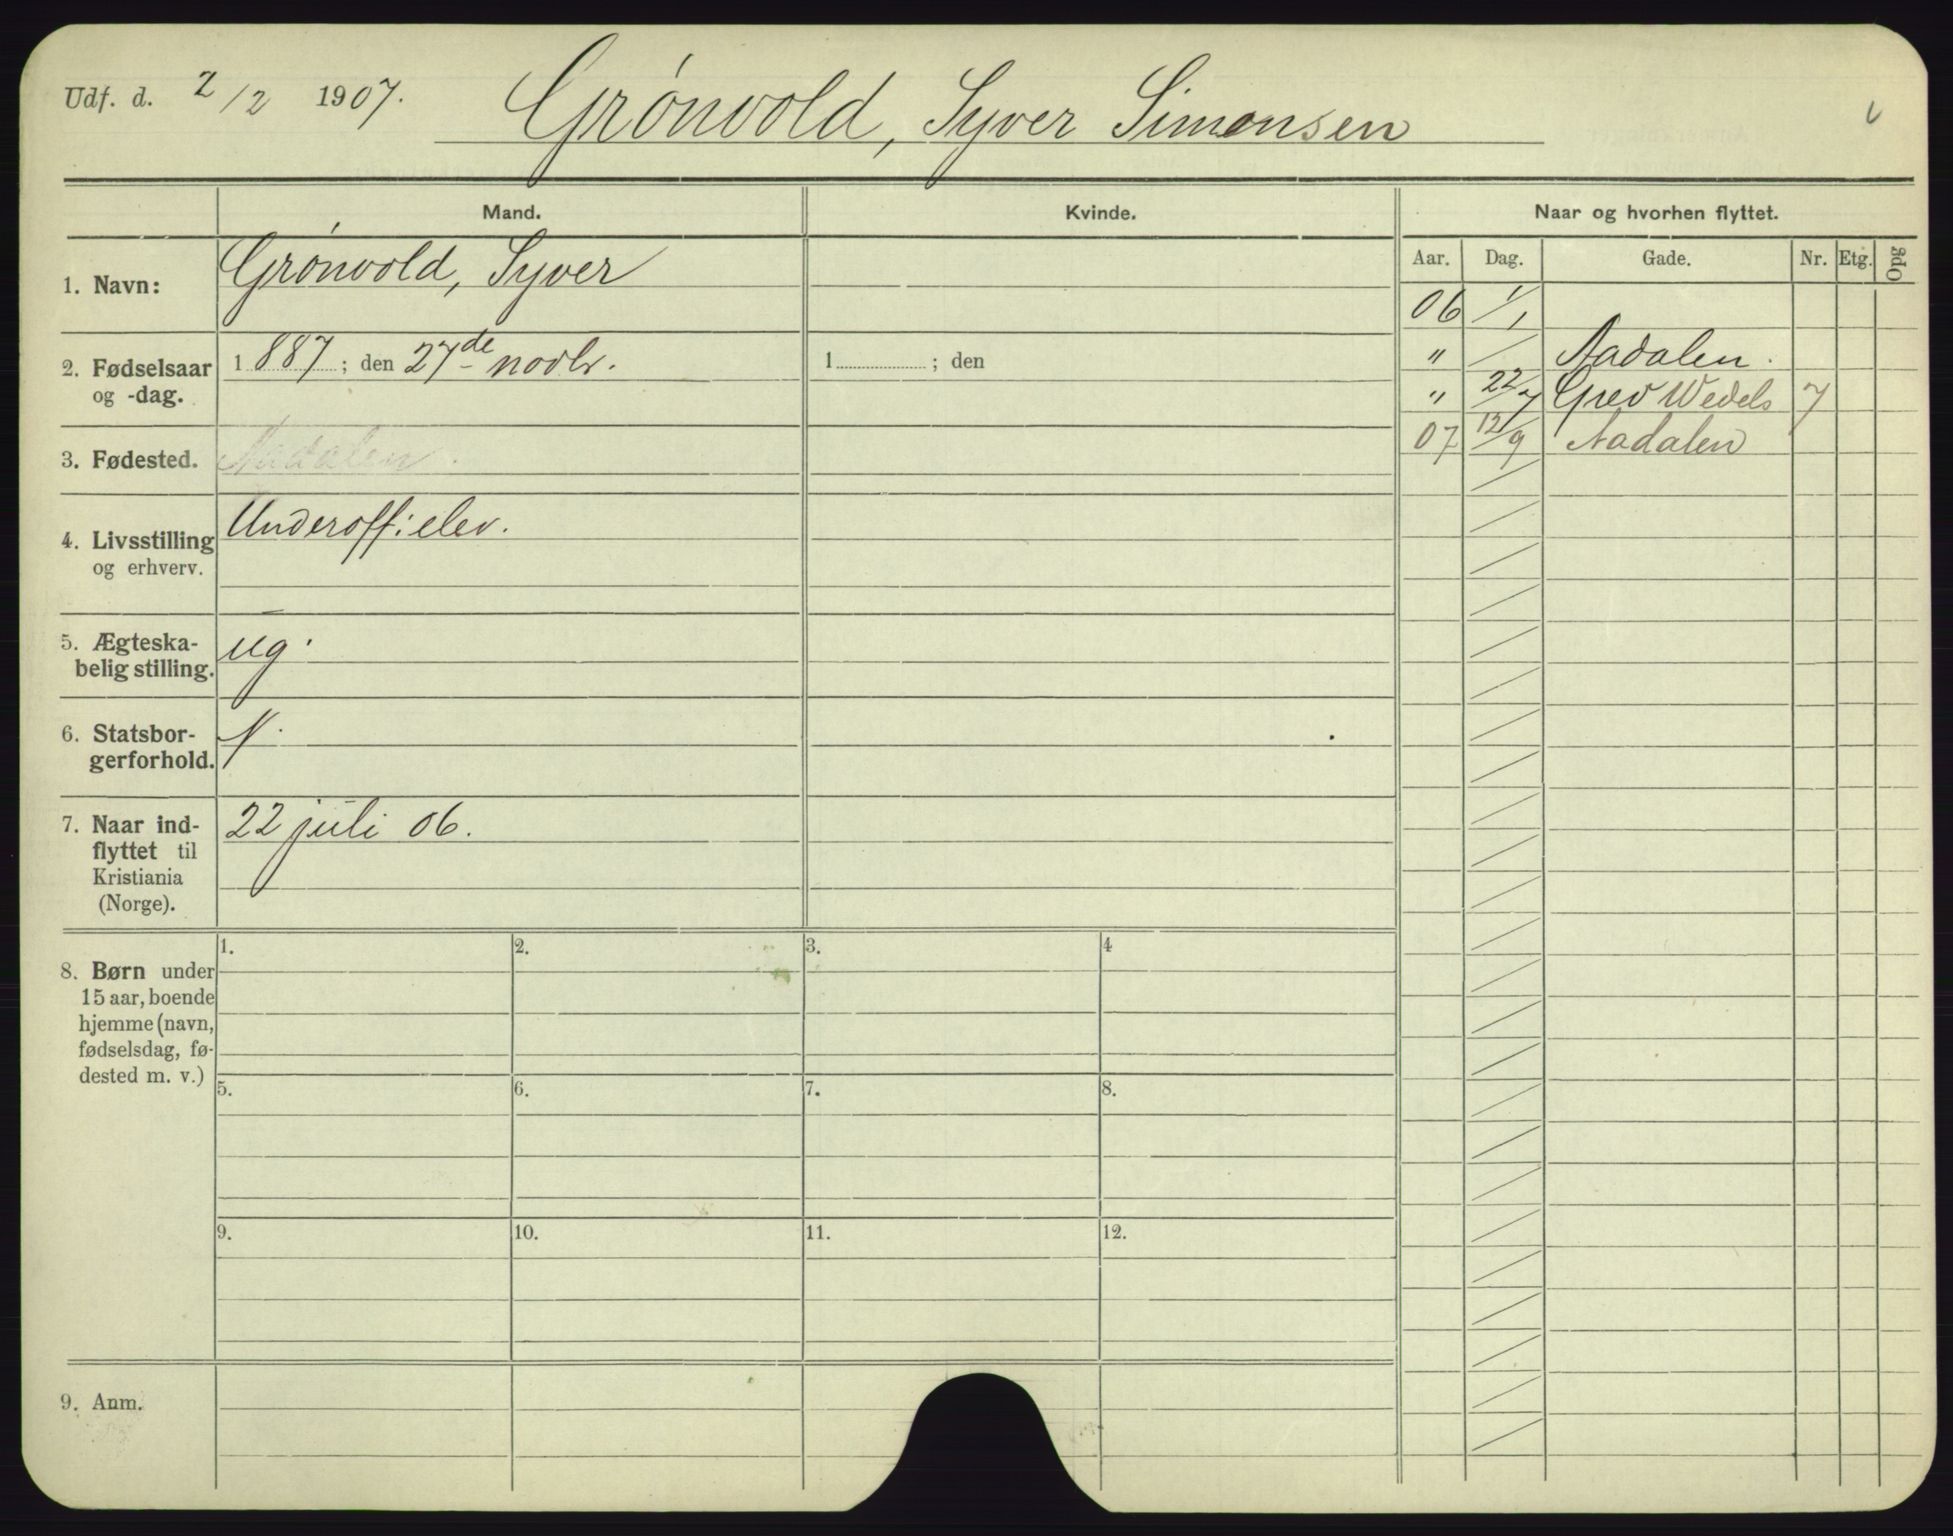 Udf. d. 2/2 1907. Grønvold, Syver Simensen
Mand. Kvinde. Naar og hvorhen flyttet.
Aar. Dag. Gade. Nr. Etg. Opg
1. Navn: Grønvold, Syver
06 1/1
2. Fødselsaar og -dag. 1887; den 27de novbr. 1 ; den
" Aadalen.
" 22/7 Grev Wedels 7
07 12/9 Aadalen
3. Fødested. Aadalen.
4. Livsstilling og erhverv. Underoff:elev.
5. Ægteska-
belig stilling. ug.
6. Statsbor-
gerforhold. N.
7. Naar ind-
flyttet til
Kristiania
(Norge). 22 juli 06.
8. Børn under
15 aar, boende
hjemme (navn,
fødselsdag, fø-
dested m. v.)
1. 2. 3. 4
5. 6. 7. 8.
9. 10. 11. 12.
9. Anm.